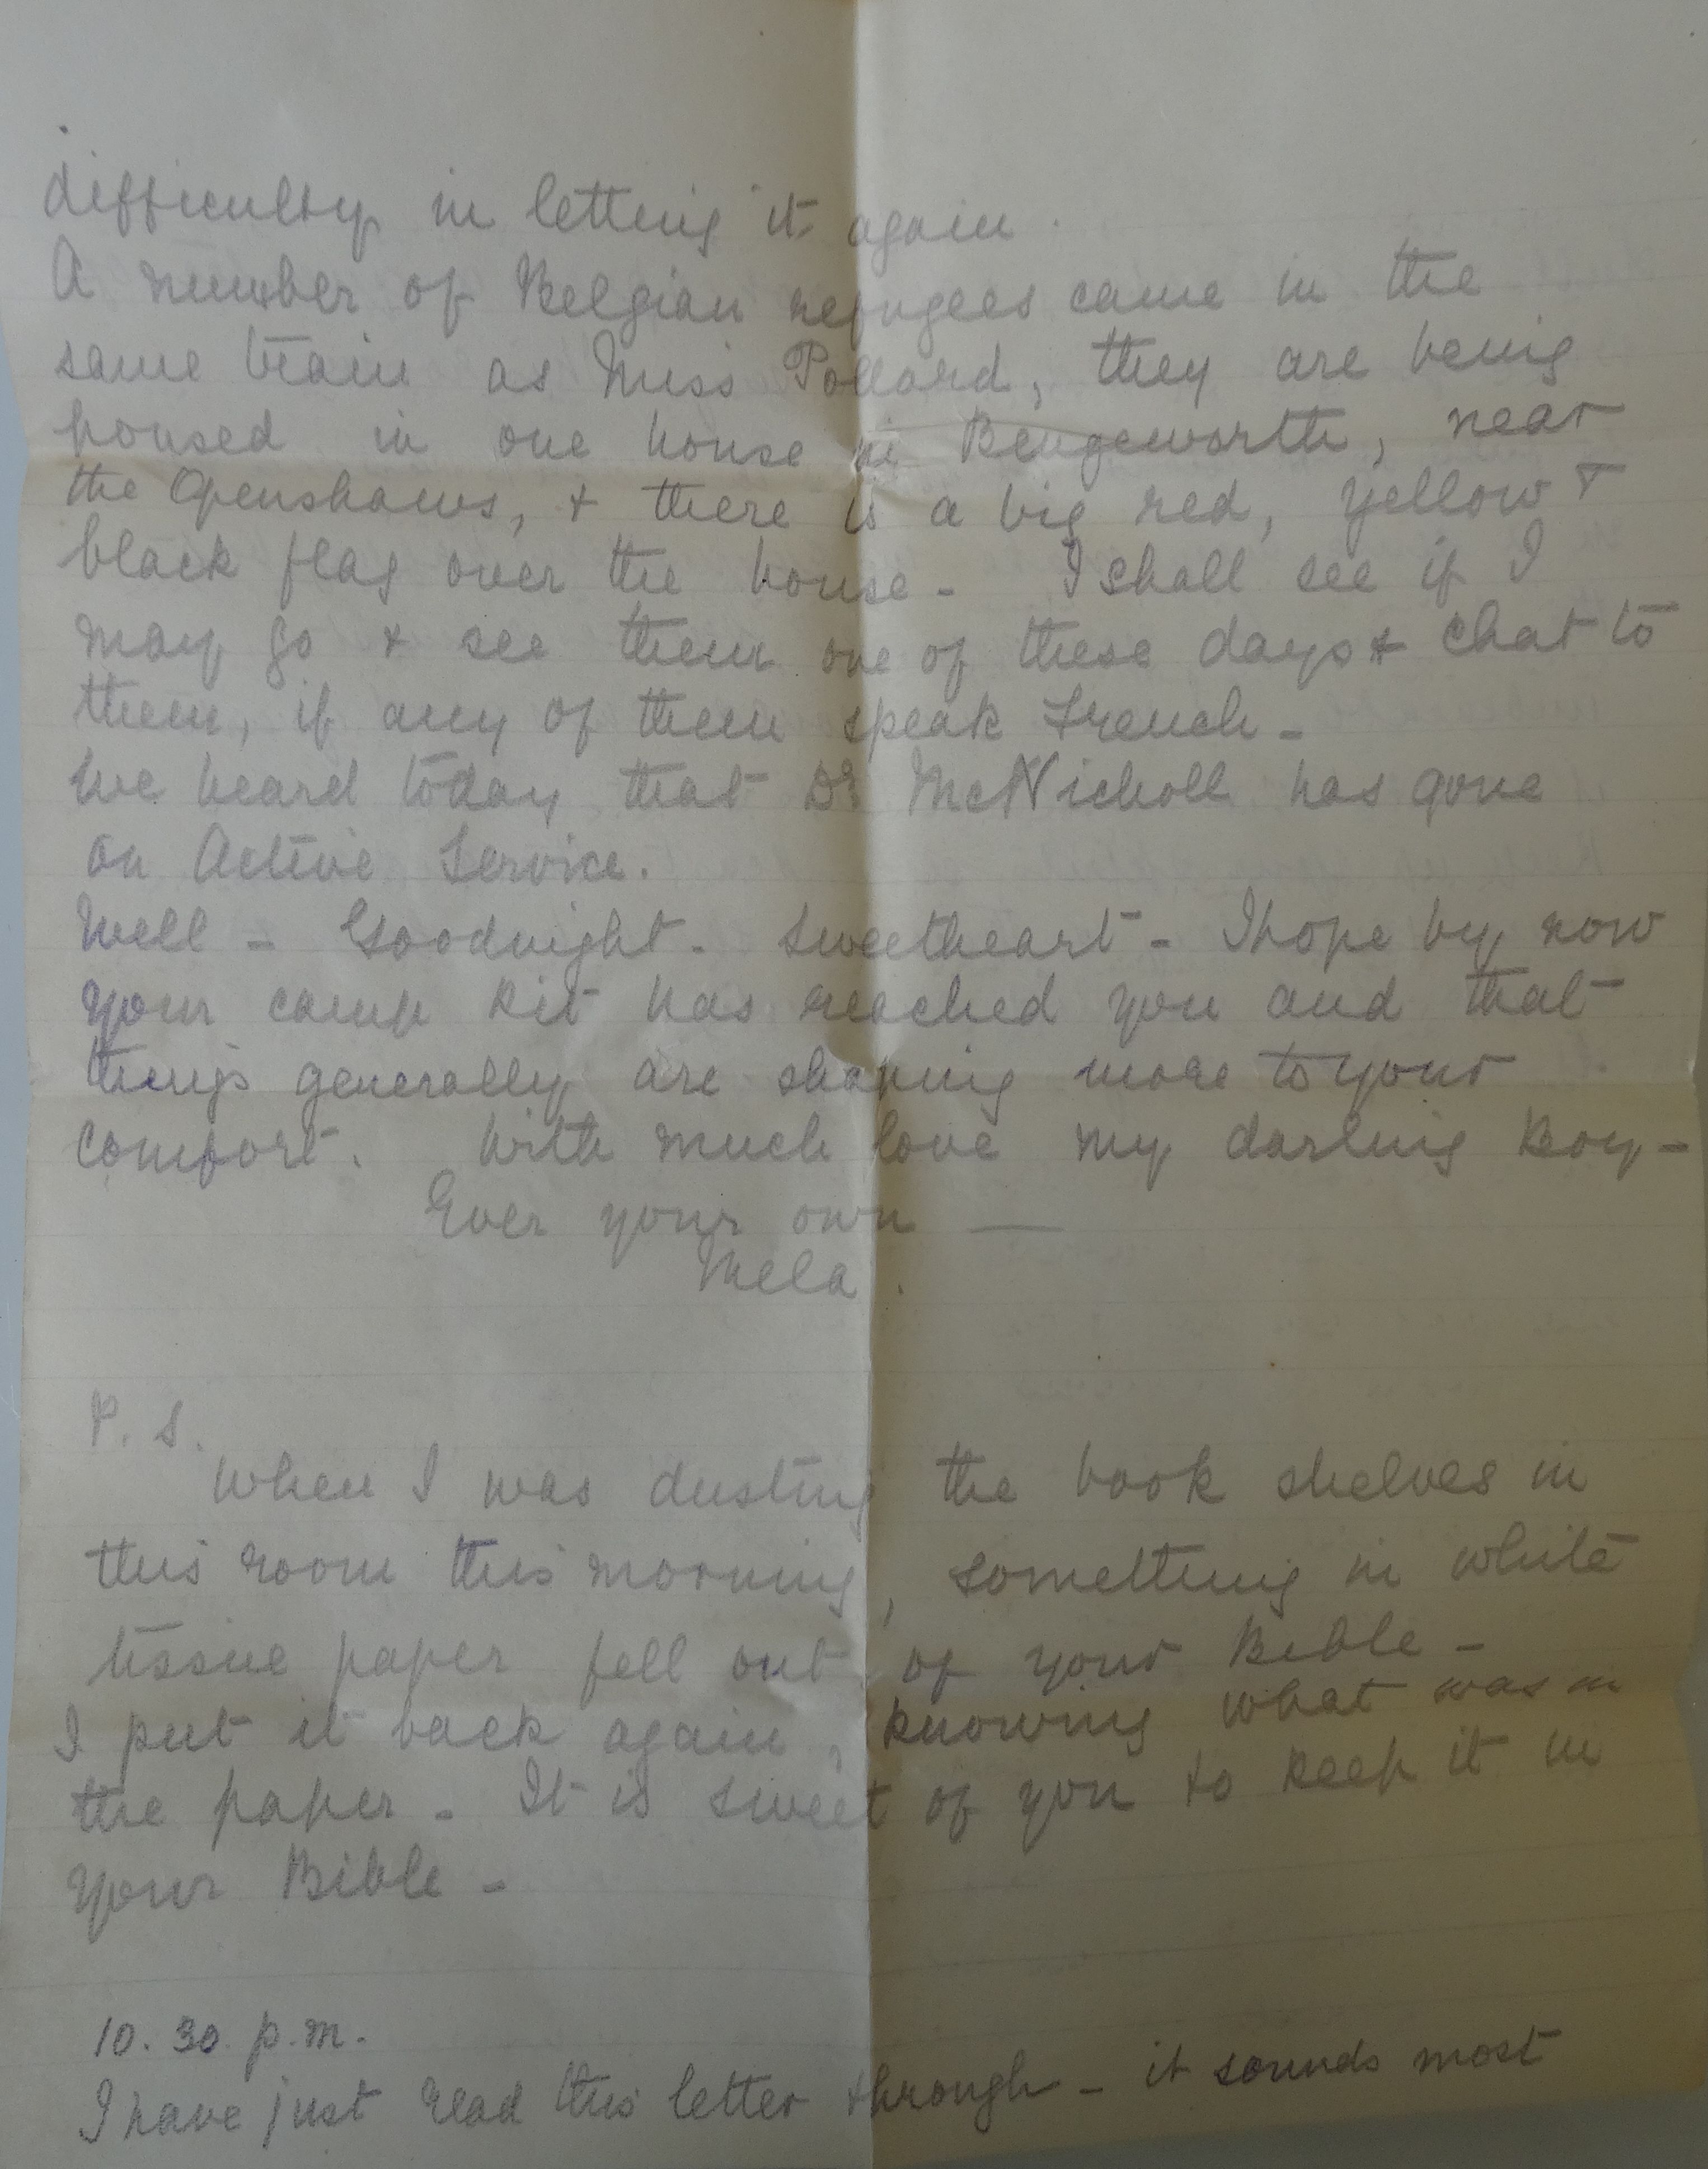 difficulty in letting it again.
A number of Belgian refugees came in the
same train as Miss Pollard, they are being
housed in one house in Bengeworth, near
the Openshaws, + there is a big red, yellow +
black flag over the house - I shall see if I
may go + see them one of these days + chat to
them, if any of them speak French -
We heard today that Dr McNicholl has gone
on Active Service.
Well - Goodnight - Sweetheart - I hope by now
your camp kit has reached you and that
things generally are shaping more to your
comfort. With much love my darling Boy -
Ever your own —
Mela.
P. S.
When I was dusting the book shelves in
this room this morning, something in white
tissue paper fell out of your Bible -
I put it back again, knowing what was in
the paper - It is sweet of you to keep it in
your Bible -
10. 30. p.m.
I have just read this letter through - it sounds most